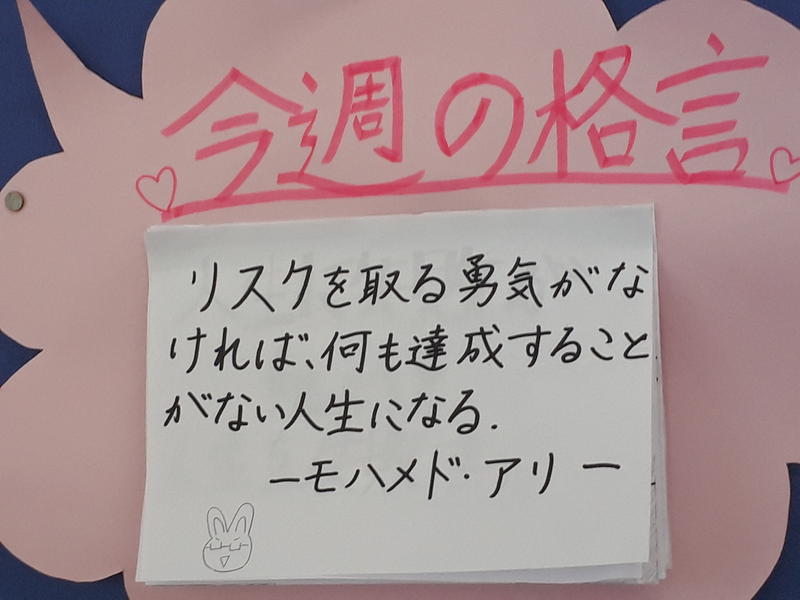 今週の格言
リスクを取る勇気がな
ければ、何も達成すること
がない人生になる.
ーモハメド・アリー